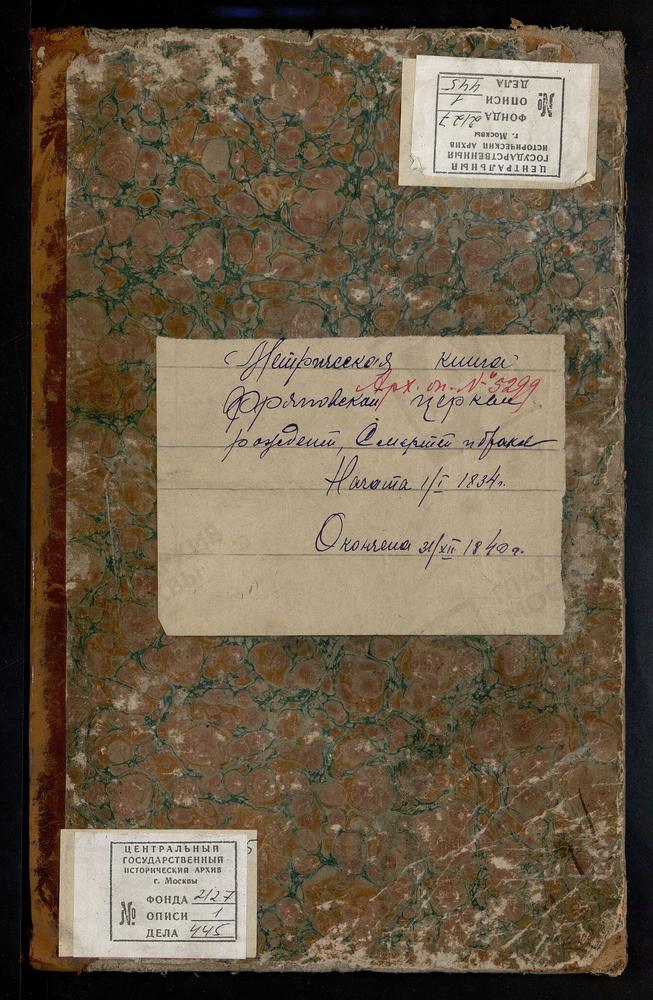 ЦЕНТРАЛЬНЫЙ
ГОСУДАРСТВЕННЫЙ
ИСТОРИЧЕСКИЙ АРХИВ
г. Москвы
№ ФОНДА 2127
ОПИСИ 1
ДЕЛА 445
Метрическая книга
Арх. оп. № 5299
Фряновской церкви
рождения, Смерти и браке
Начата 1/I 1834 г.
Окончена 31/XII 1840 г.
ЦЕНТРАЛЬНЫЙ
ГОСУДАРСТВЕННЫЙ
ИСТОРИЧЕСКИЙ АРХИВ
г. Москвы
№ ФОНДА 2127
ОПИСИ 1
ДЕЛА 445